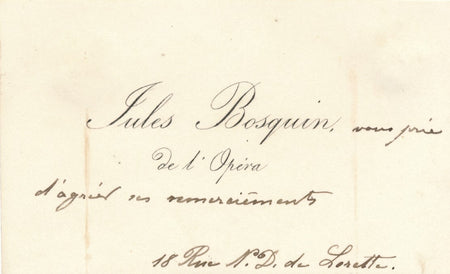 Jules Bosquin, vous prie
de l'Opéra
d'agréer ses remerciéments
18 Rue N. D. de Lorette.